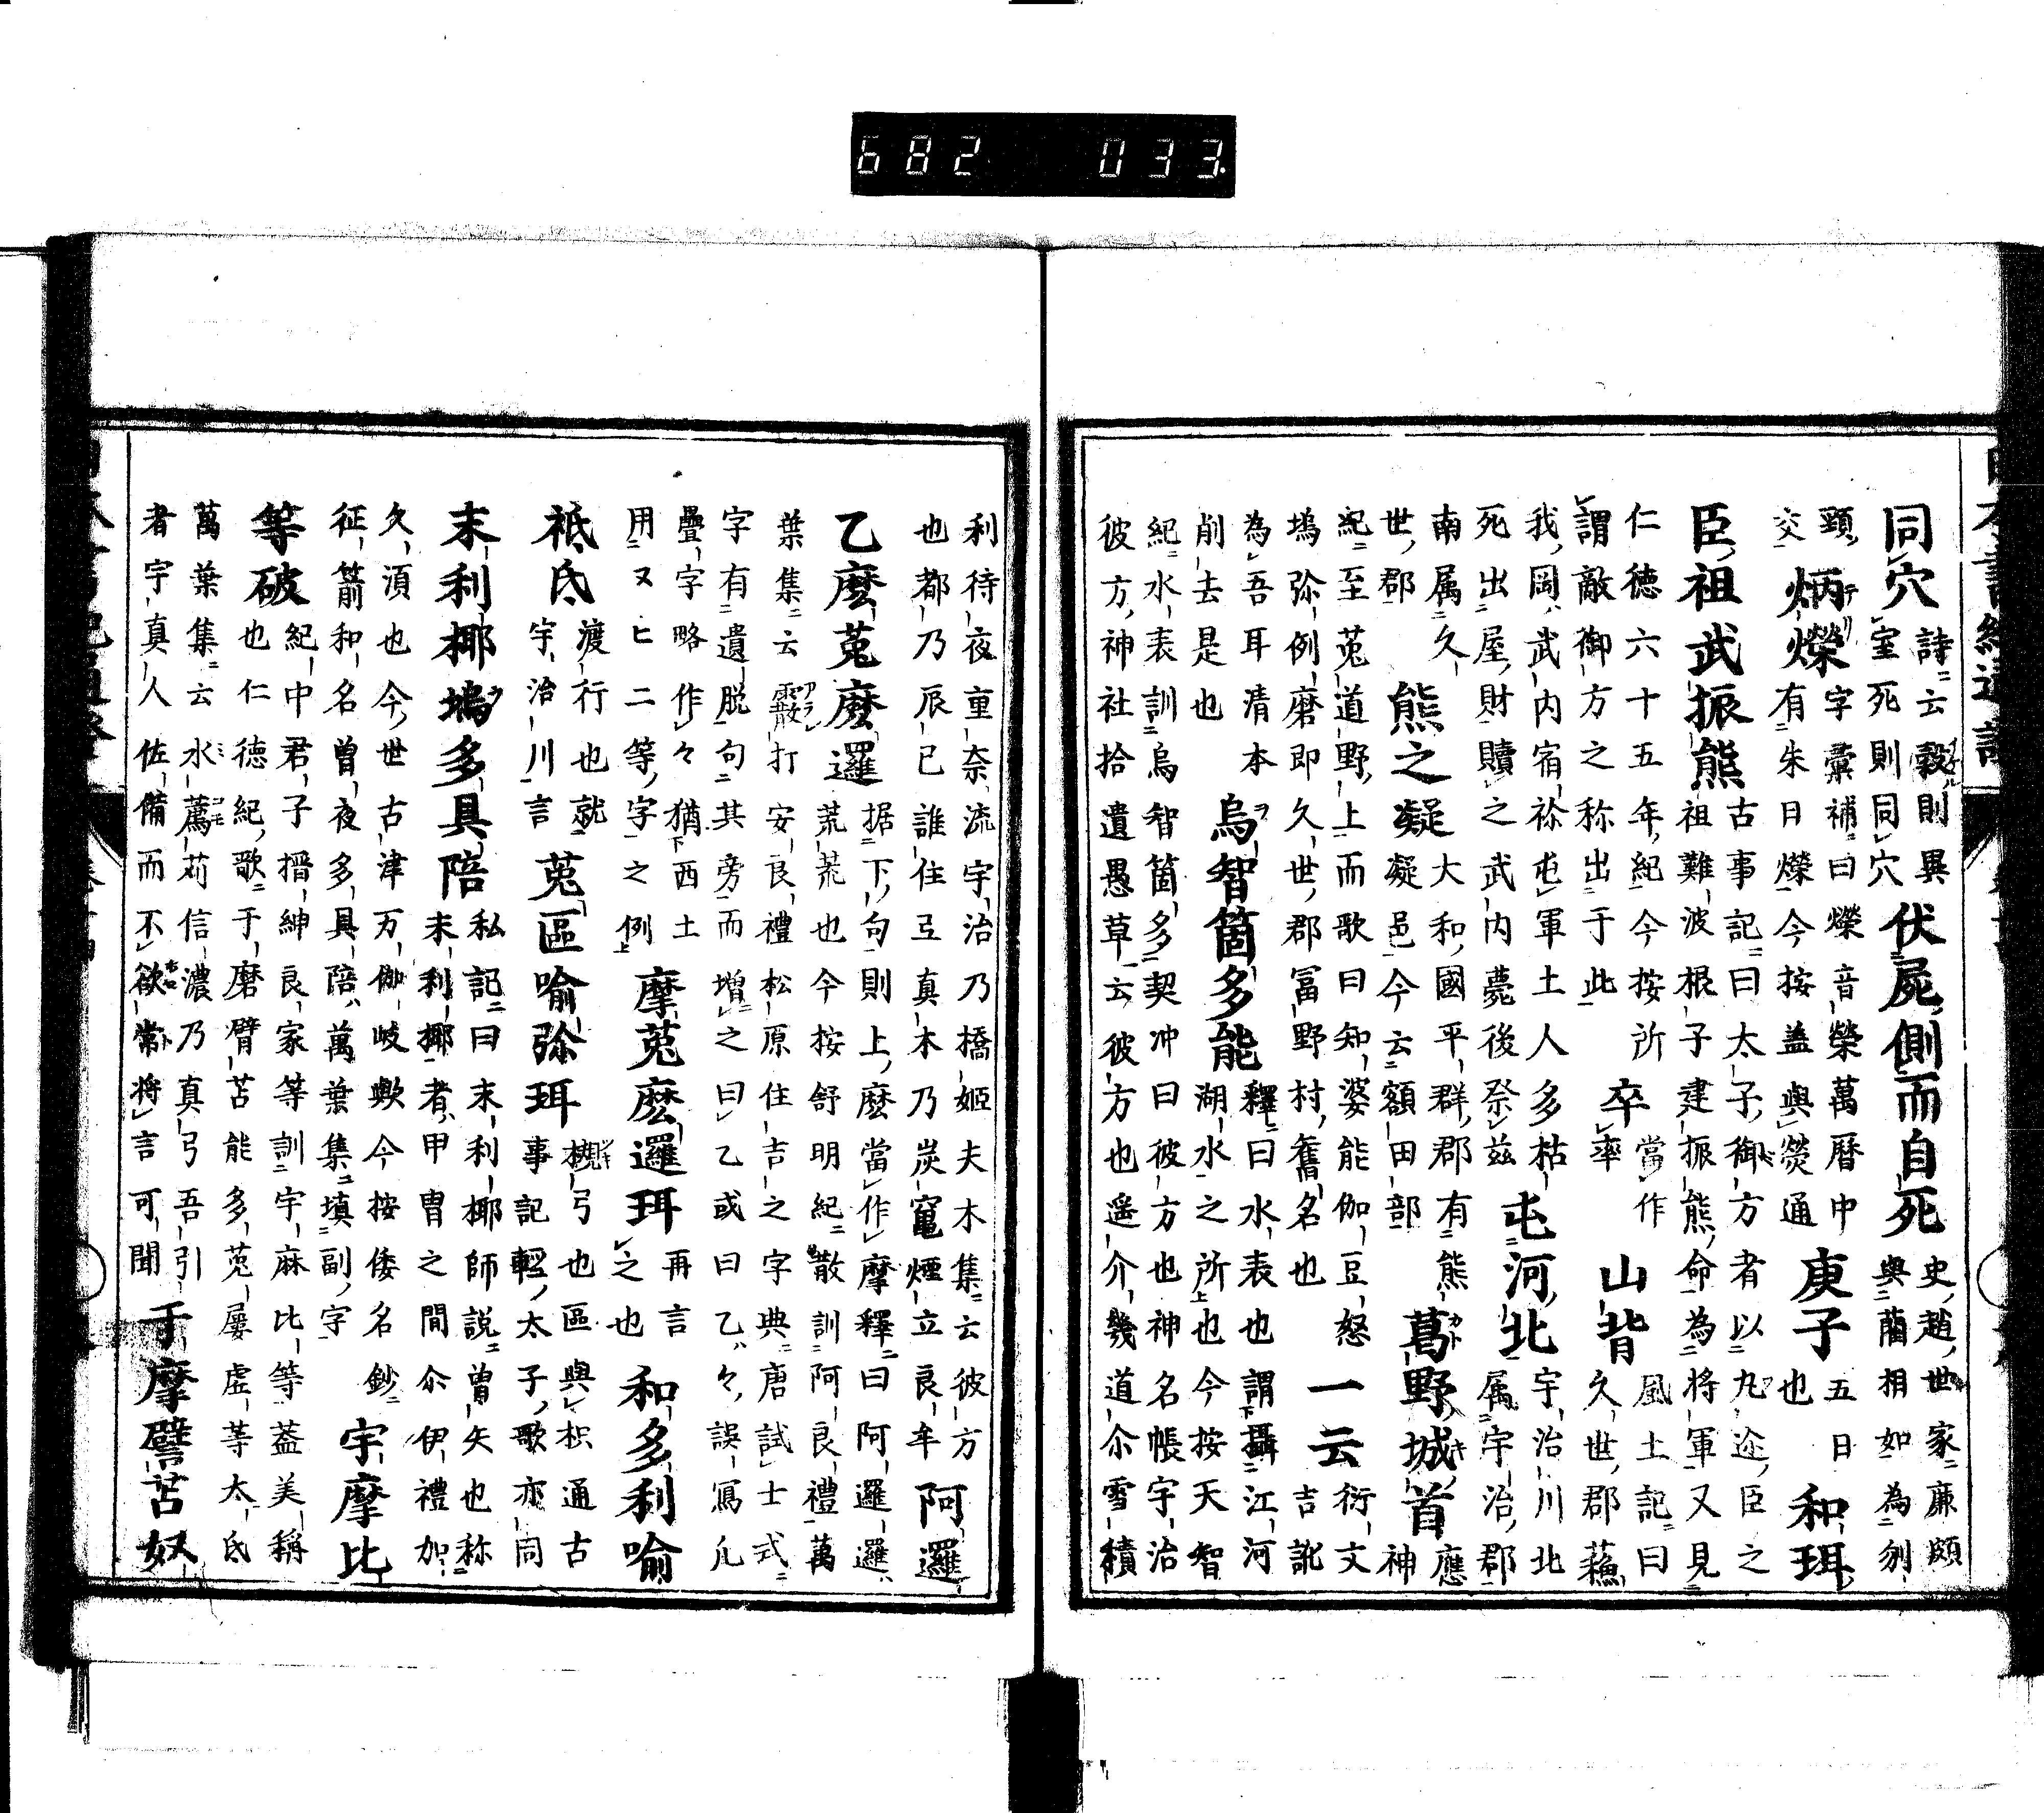 同穴 詩云穀則異
室死則同穴
伏屍側而自死 史趙世家廉頗
與藺相如為刎
頸
交
炳爃 字彙補曰爃音榮萬曆中
有朱日爃今按蓋與熒通
庚子 五日
也
和珥
臣祖武振熊 古事記曰太子御方者以丸迩臣之
祖難波根子建振熊命為将軍又見
仁德六十五年紀今按所
謂敵御方之称出于此
卒 當作
率
山背 風土記曰
久世郡蘓
我岡武内宿祢屯軍土人多枯
死出屋財贖之武内薨後祭兹
屯河北 宇治川北
属宇治郡
南属久
世郡
熊之凝 大和國平群郡有熊
凝邑今云額田部
葛野城首 應
神
紀至莵道野上而歌曰知婆能伽豆怒
塢弥例磨即久世郡冨野村奮名也
一云 衍文
吉訛
為吾耳清本
削去是也
烏智箇多能 釋曰水表也謂攝江河
湖水之所也今按天智
紀水表訓烏智箇多契冲曰彼方也神名帳宇治
彼方神社拾遺愚草云彼方也遥介幾道尒雪積
利待夜重奈流宇治乃橋姬夫木集云彼方
也都乃辰已誰住真木乃炭竃煙立良牟
阿邏
乙麽莵麽邏 据下句則上麽當作摩釋曰阿邏邏
荒荒也今按舒明紀散訓阿良禮萬
葉集云霰打安良禮松原住吉之字典唐試士式
字有遺脱句其旁而増之曰乙或曰乙々誤寫凡
疊字略作々猶西土
用又匕二等字之例
摩莵麽邏珥 再言
之也
和多利喻
祗氐 渡行也就
宇治川言
莵區喻弥珥 槻弓也區與枳通古
事記輕太子歌亦同
末利椰塢多具陪 私記曰末利椰師説曽矢也称
末利椰者甲冑之間尒伊禮加
久湏也今世古津万伽岐歟今按倭名鈔
征箭和名曽夜多具陪萬葉集填副字
宇摩比
等破 紀中君子搢紳良家等訓宇麻比等蓋美稱
也仁德紀歌于磨臂苫能多莵屢虛等太氐
萬葉集云水薦苅信濃乃真弓吾引
者宇真人佐備而不欲常将言可聞
于摩譬苫奴